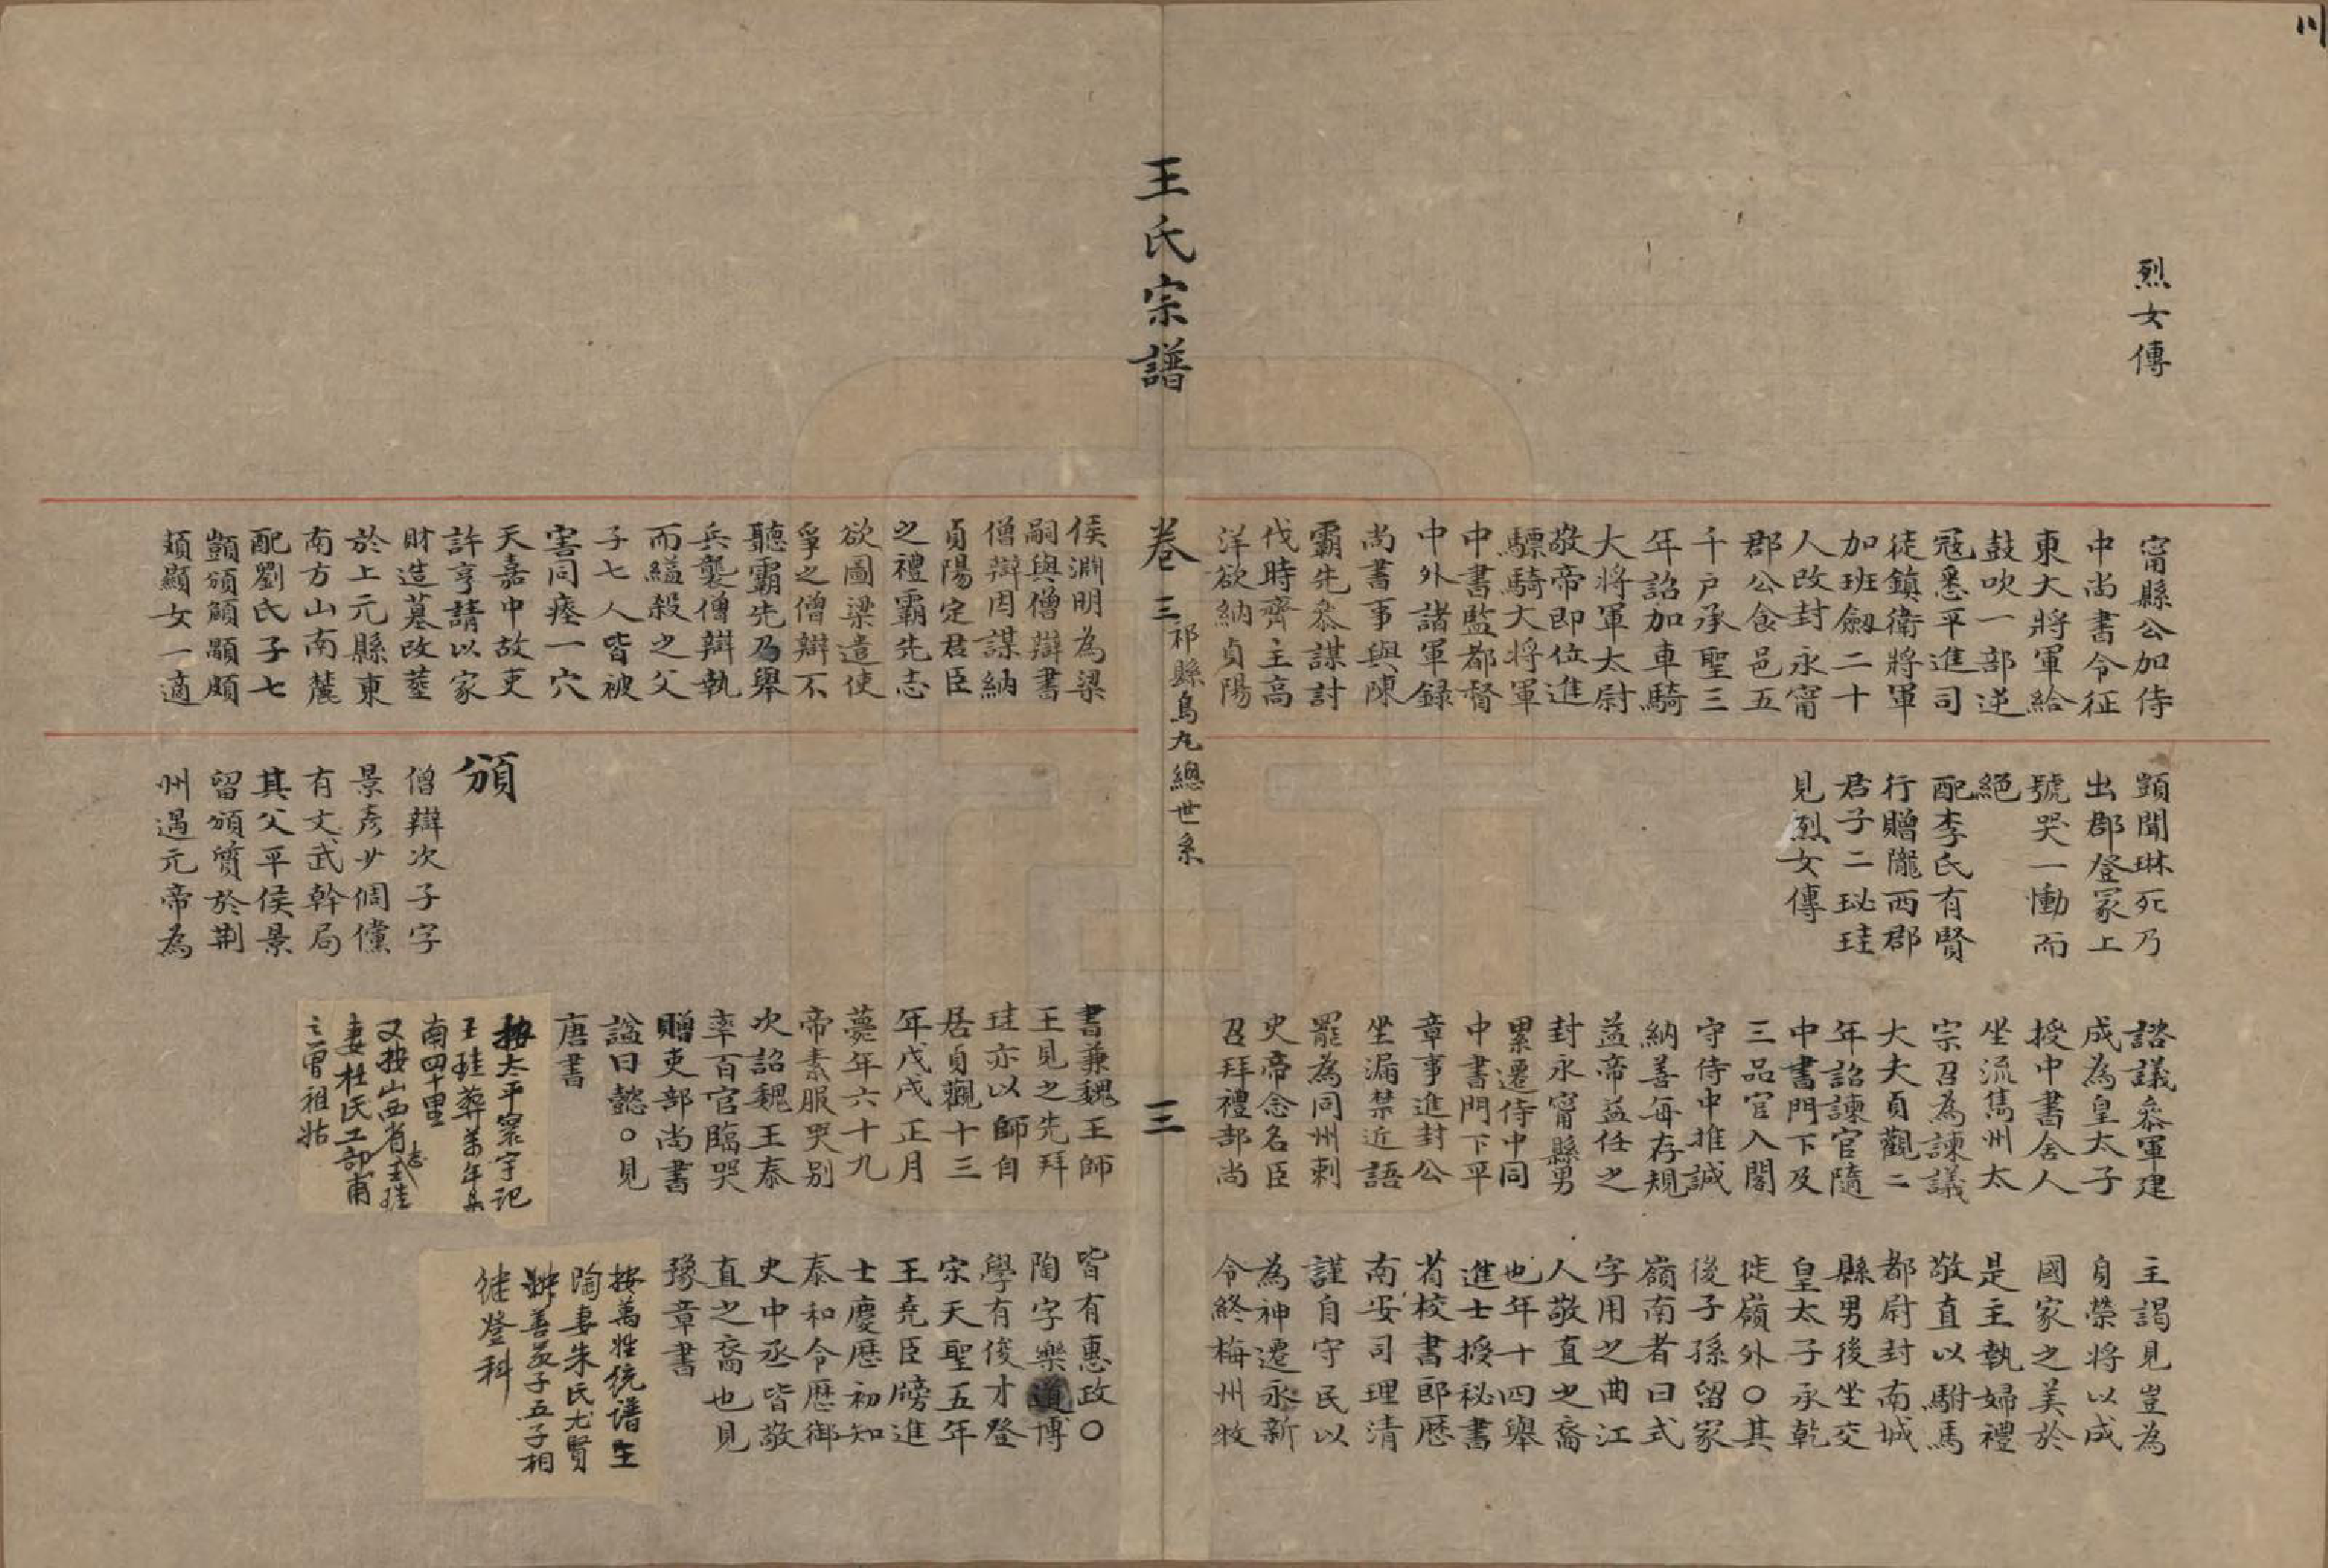 烈女傳
甯縣公加侍
中尚書令征
東大將軍給
鼓吹一部逆
冦悉平進司
徒鎮衛將軍
加班劒二十
人改封永甯
郡公食邑五
千戶承聖三
年詔加車騎
大將軍太尉
敬帝即位進
驃騎大將軍
中書監都督
中外諸軍録
尚書事與陳
霸先叅謀討
伐時齊主高
洋欲納貞陽
顗聞琳死乃
出郡登冢上
號哭一慟而
絕
配李氏有賢
行贈隴西郡
君子二珌珪
見烈女傳
諮議叅軍建
成為皇太子
授中書舍人
坐流雋州太
宗召為諫議
大夫貞觀二
年詔諫官隨
中書門下及
三品官入閣
守侍中推誠
納善每存規
益帝益任之
封永甯縣男
累遷侍中同
中書門下平
章事進封公
坐漏禁近語
罷為同州刺
史帝念名臣
召拜禮部尚
主謁見豈為
自榮將以成
國家之美於
是主執婦禮
敬直以駙馬
都尉封南城
縣男後坐交
皇太子承乾
徙嶺外○其
後子孫留家
嶺南者曰式
字用之曲江
人敬直之裔
也年十四舉
進士授秘書
省校書郎歷
南安司理清
謹自守民以
為神遷永新
令終梅州牧
王氏宗譜
卷三
祁縣烏丸總世系
三
侯淵明為梁
嗣與僧辯書
僧辯因謀納
貞陽定君臣
之禮霸先志
欲圖梁遣使
孚之僧辯不
聽霸先乃舉
兵襲僧辯執
而縊殺之父
子七人皆被
害同瘞一穴
天嘉中故吏
許亨請以家
財造墓改塟
於上元縣東
南方山南麓
配劉氏子七
顗頒頠顒頗
頍顯女一適
頒
僧辯次子字
景彥少倜儻
有文武幹局
其父平侯景
留頒質於荆
州遇元帝為
書兼魏王師
王見之先拜
珪亦以師自
居貞觀十三
年戊戌正月
薨年六十九
帝素服哭别
次詔魏王泰
率百官臨哭
贈吏部尚書
諡曰懿○見
唐書
按太平寰宇記
王珪葬萬年縣
南四十里
又按山西省志王珪
妻杜氏工部甫
之曾祖姑
皆有惠政○
陶字樂道博
學有俊才登
宋天聖五年
王堯臣牓進
士慶歷初知
泰和令歷御
史中丞皆敬
直之裔也見
豫章書
按萬姓统谱王
陶妻朱氏尤賢
辦善㳟子五子相
继登科